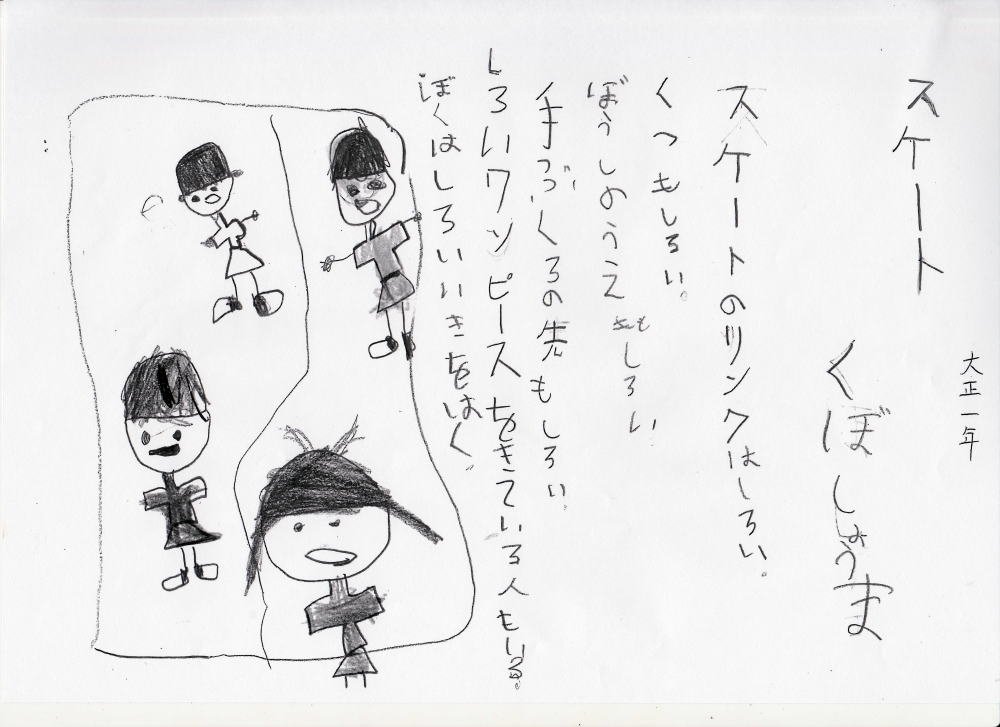 スケート
大正一年
くぼしょうま
スケートのリンクはしろい。
くつもしろい。
ぼうしのうえもしろい
手づくろの先もしろい。
しろいワンピースをきている人もいる。
ぼくはしろいいきをはく。